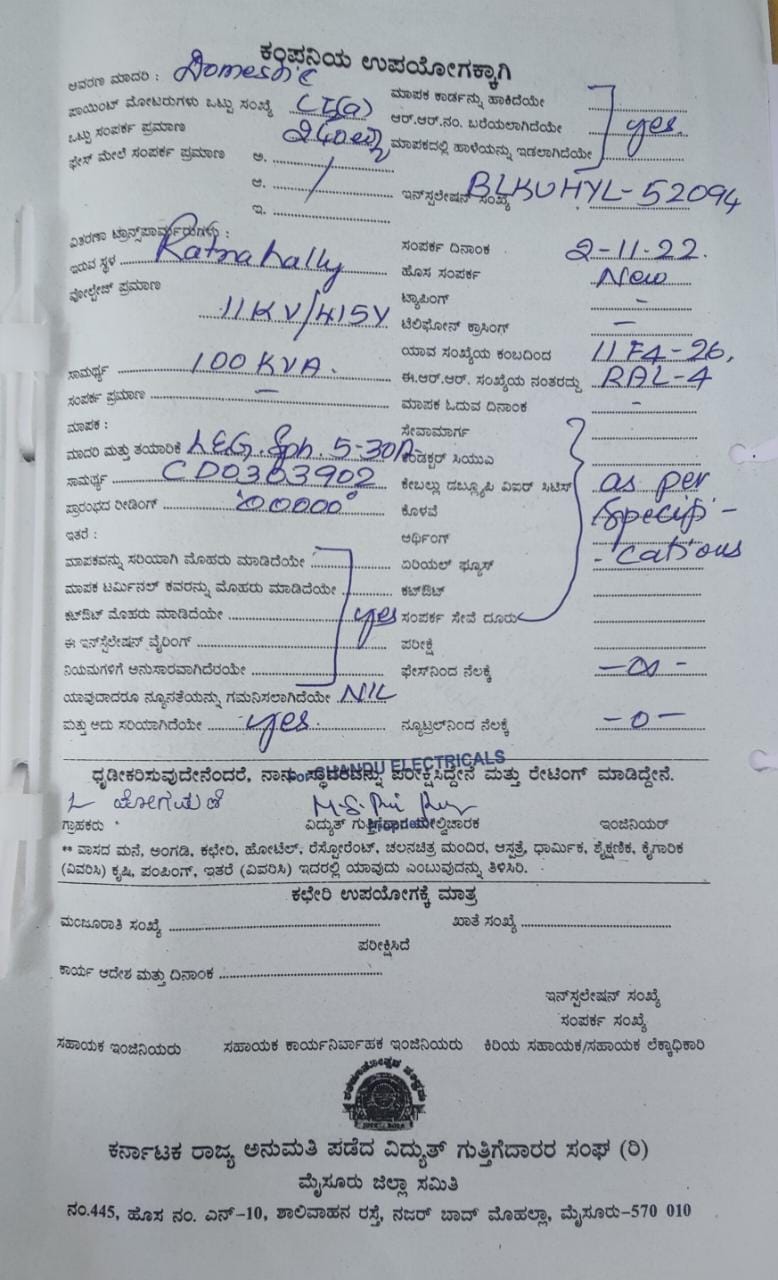 ಕಂಪನಿಯ ಉಪಯೋಗಕ್ಕಾಗಿ
ಆವರಣ ಮಾದರಿ : Domestic
ಮಾಪಕ ಕಾರ್ಡನ್ನು ಹಾಕಿದೆಯೇ
ಪಾಯಿಂಟ್ ಮೋಟರುಗಳು ಒಟ್ಟು ಸಂಖ್ಯೆ
ಆರ್.ಆರ್.ನಂ. ಬರೆಯಲಾಗಿದೆಯೇ yes.
ಒಟ್ಟು ಸಂಪರ್ಕ ಪ್ರಮಾಣ
ಮಾಪಕದಲ್ಲಿ ಹಾಳೆಯನ್ನು ಇಡಲಾಗಿದೆಯೇ
ಫೇಸ್ ಮೇಲೆ ಸಂಪರ್ಕ ಪ್ರಮಾಣ ಅ.
ಆ.
ಇನ್‌ಸ್ಟಲೇಷನ್ ಸಂಖ್ಯೆ BLKUHYL-52094
ಇ.
ವಿತರಣಾ ಟ್ರಾನ್ಸ್‌ಪಾರ್ಮರುಗಳು :
ಸಂಪರ್ಕ ದಿನಾಂಕ 2-11-22.
ಇರುವ ಸ್ಥಳ Ratnahally
ಹೊಸ ಸಂಪರ್ಕ New
ವೋಲ್ಟೇಜ್ ಪ್ರಮಾಣ
ಟ್ಯಾಪಿಂಗ್ -
11KV/415V
ಟೆಲಿಫೋನ್ ಕ್ರಾಸಿಂಗ್ -
ಯಾವ ಸಂಖ್ಯೆಯ ಕಂಬದಿಂದ 11F4-26,
ಸಾಮರ್ಥ್ಯ 100KVA.
ಈ.ಆರ್.ಆರ್. ಸಂಖ್ಯೆಯ ನಂತರದ್ದು RAL-4
ಸಂಪರ್ಕ ಪ್ರಮಾಣ -
ಮಾಪಕ ಓದುವ ದಿನಾಂಕ -
ಮಾಪಕ :
ಸೇವಾಮಾರ್ಗ
ಮಾದರಿ ಮತ್ತು ತಯಾರಿಕೆ L&G. Sph. 5-30A
ಕಂಡಕ್ಟರ್ ಸಿಯುಎ
ಸಾಮರ್ಥ್ಯ CD0363902
ಕೇಬಲ್ಲು ಡಬ್ಲ್ಯೂಪಿ ವಿಐರ್ ಸಿಟಿಸ್ as per
ಪ್ರಾರಂಭದ ರೀಡಿಂಗ್ 00000
ಕೊಳವೆ Specifi-
ಇತರೆ :
ಅರ್ಥಿಂಗ್
ಮಾಪಕವನ್ನು ಸರಿಯಾಗಿ ಮೊಹರು ಮಾಡಿದೆಯೇ
ಏರಿಯಲ್ ಫ್ಯೂಸ್ -cations
ಮಾಪಕ ಟರ್ಮಿನಲ್ ಕವರನ್ನು ಮೊಹರು ಮಾಡಿದೆಯೇ
ಕಟ್‌ಔಟ್
ಕಟ್‌ಔಟ್ ಮೊಹರು ಮಾಡಿದೆಯೇ yes
ಸಂಪರ್ಕ ಸೇವೆ ದೂರು
ಈ ಇನ್‌ಸ್ಟೆಲೇಷನ್ ವೈರಿಂಗ್
ಪರೀಕ್ಷೆ
ನಿಯಮಗಳಿಗೆ ಅನುಸಾರವಾಗಿದೆರಯೇ
ಫೇಸ್‌ನಿಂದ ನೆಲಕ್ಕೆ -∞-
ಯಾವುದಾದರೂ ನ್ಯೂನತೆಯನ್ನು ಗಮನಿಸಲಾಗಿದೆಯೇ NIL
ಮತ್ತು ಅದು ಸರಿಯಾಗಿದೆಯೇ yes.
ನ್ಯೂಟ್ರಲ್‌ನಿಂದ ನೆಲಕ್ಕೆ -0-
For CHANDU ELECTRICALS
ಧೃಡೀಕರಿಸುವುದೇನೆಂದರೆ, ನಾನು ಸ್ಥಾವರವನ್ನು ಪರೀಕ್ಷಿಸಿದ್ದೇನೆ ಮತ್ತು ರೇಟಿಂಗ್ ಮಾಡಿದ್ದೇನೆ.
ಗ್ರಾಹಕರು ವಿದ್ಯುತ್ ಗುತ್ತಿಗೆದಾರ ಮೇಲ್ವಿಚಾರಕ ಇಂಜಿನಿಯರ್
** ವಾಸದ ಮನೆ, ಅಂಗಡಿ, ಕಛೇರಿ, ಹೋಟೆಲ್, ರೆಸ್ಟೋರೆಂಟ್, ಚಲನಚಿತ್ರ ಮಂದಿರ, ಆಸ್ಪತ್ರೆ, ಧಾರ್ಮಿಕ, ಶೈಕ್ಷಣಿಕ, ಕೈಗಾರಿಕ
(ವಿವರಿಸಿ) ಕೃಷಿ, ಪಂಪಿಂಗ್, ಇತರೆ (ವಿವರಿಸಿ) ಇದರಲ್ಲಿ ಯಾವುದು ಎಂಬುವುದನ್ನು ತಿಳಿಸಿರಿ.
ಕಛೇರಿ ಉಪಯೋಗಕ್ಕೆ ಮಾತ್ರ
ಮಂಜೂರಾತಿ ಸಂಖ್ಯೆ ಖಾತೆ ಸಂಖ್ಯೆ
ಪರೀಕ್ಷಿಸಿದೆ
ಕಾರ್ಯ ಆದೇಶ ಮತ್ತು ದಿನಾಂಕ
ಇನ್‌ಸ್ಟಲೇಷನ್ ಸಂಖ್ಯೆ
ಸಂಪರ್ಕ ಸಂಖ್ಯೆ
ಸಹಾಯಕ ಇಂಜಿನಿಯರು ಸಹಾಯಕ ಕಾರ್ಯನಿರ್ವಾಹಕ ಇಂಜಿನಿಯರು ಕಿರಿಯ ಸಹಾಯಕ/ಸಹಾಯಕ ಲೆಕ್ಕಾಧಿಕಾರಿ
ಕರ್ನಾಟಕ ರಾಜ್ಯ ಅನುಮತಿ ಪಡೆದ ವಿದ್ಯುತ್ ಗುತ್ತಿಗೆದಾರರ ಸಂಘ (ರಿ)
ಮೈಸೂರು ಜಿಲ್ಲಾ ಸಮಿತಿ
ನಂ.445, ಹೊಸ ನಂ. ಎನ್-10, ಶಾಲಿವಾಹನ ರಸ್ತೆ, ನಜರ್ ಬಾದ್ ಮೊಹಲ್ಲಾ, ಮೈಸೂರು-570 010